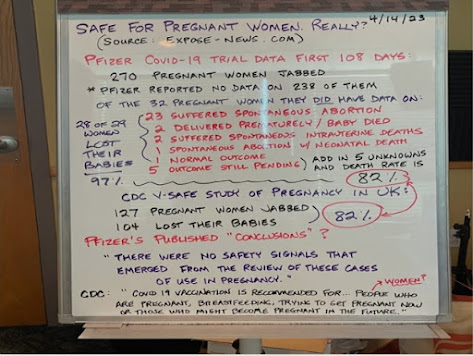 SAFE FOR PREGNANT WOMEN. REALLY? 4/14/23
(SOURCE: EXPOSE-NEWS.COM)
PFIZER COVID-19 TRIAL DATA FIRST 108 DAYS:
270 PREGNANT WOMEN JABBED
* PFIZER REPORTED NO DATA ON 238 OF THEM
OF THE 32 PREGNANT WOMEN THEY DID HAVE DATA ON:
28 OF 29 WOMEN LOST THEIR BABIES
97%
23 SUFFERED SPONTANEOUS ABORTION
2 DELIVERED PREMATURELY / BABY DIED
2 SUFFERED SPONTANEOUS INTRAUTERINE DEATHS
1 SPONTANEOUS ABORTION W/ NEONATAL DEATH
1 NORMAL OUTCOME
5 OUTCOME STILL PENDING
ADD IN 5 UNKNOWNS
AND DEATH RATE IS
82%
CDC V-SAFE STUDY OF PREGNANCY IN UK:
127 PREGNANT WOMEN JABBED
104 LOST THEIR BABIES
82%
PFIZER'S PUBLISHED "CONCLUSIONS"?
"THERE WERE NO SAFETY SIGNALS THAT
EMERGED FROM THE REVIEW OF THESE CASES
OF USE IN PREGNANCY."
WOMEN?
CDC: "COVID 19 VACCINATION IS RECOMMENDED FOR... PEOPLE WHO
ARE PREGNANT, BREASTFEEDING, TRYING TO GET PREGNANT NOW
OR THOSE WHO MIGHT BECOME PREGNANT IN THE FUTURE."